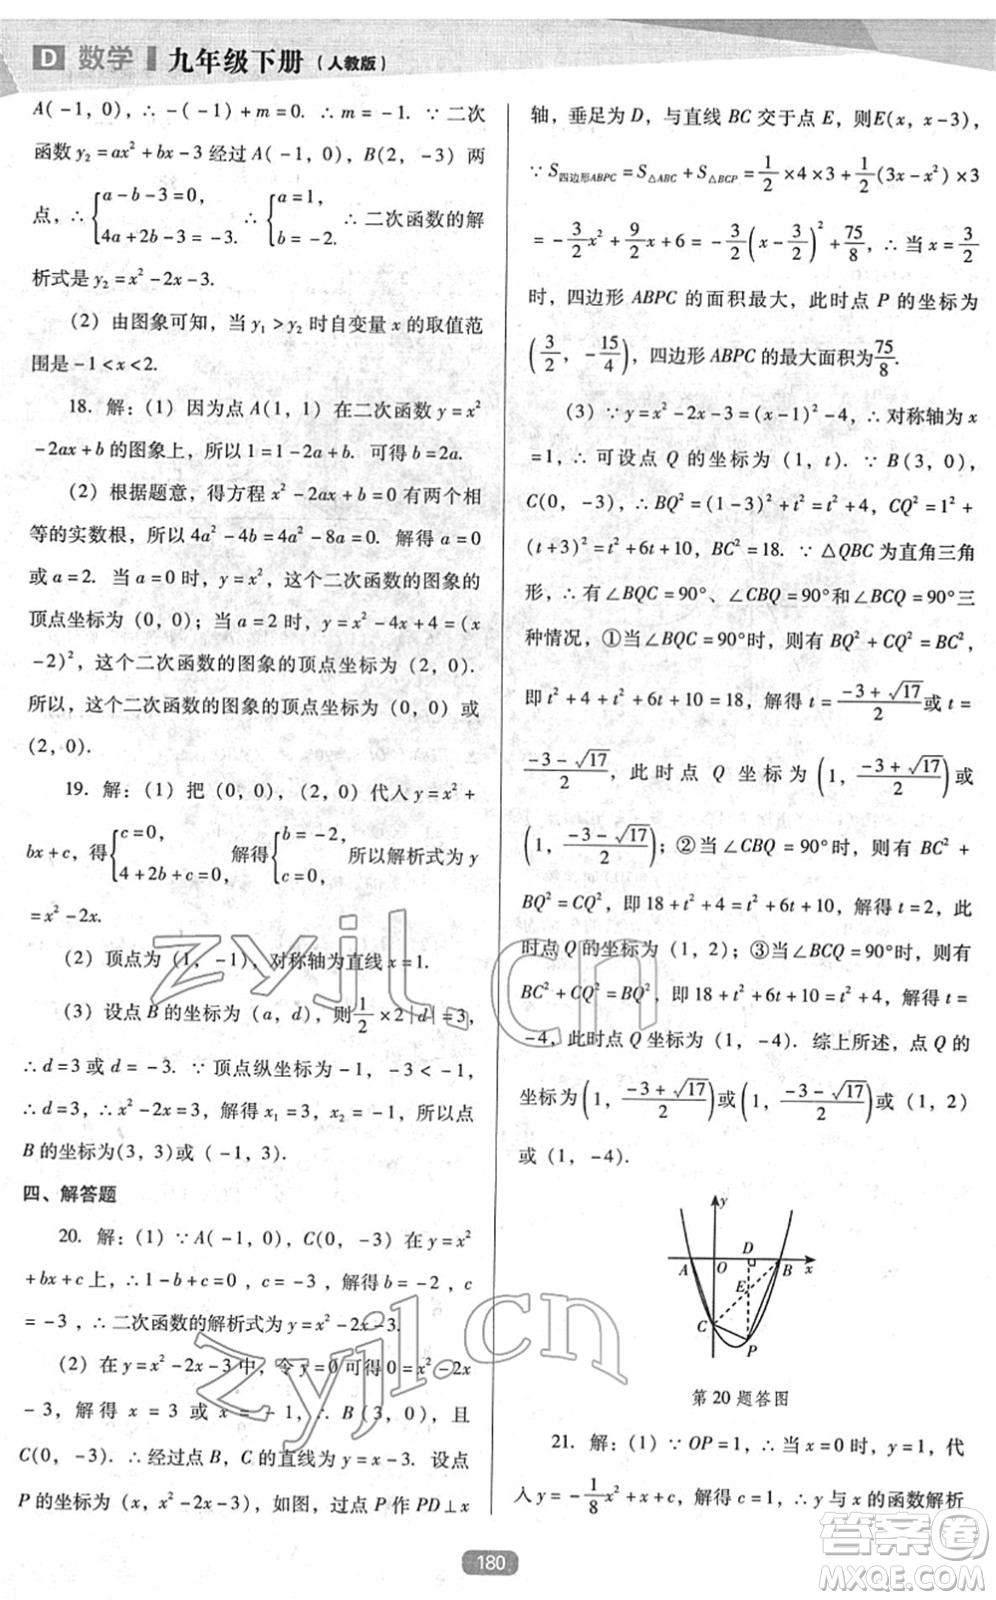 D 数学 九年级下册（人教版）
A(-1, 0), ∴ -(-1)+m=0. ∴ m=-1. ∵ 二次
函数 y₂=ax²+bx-3 经过 A(-1, 0), B(2, -3) 两
点, ∴ {a-b-3=0, 4a+2b-3=-3. ∴ {a=1, b=-2. ∴ 二次函数的解
析式是 y₂=x²-2x-3.
(2) 由图象可知, 当 y₁>y₂ 时自变量 x 的取值范
围是 -1<x<2.
18. 解: (1) 因为点 A(1, 1) 在二次函数 y=x²
-2ax+b 的图象上, 所以 1=1-2a+b. 可得 b=2a.
(2) 根据题意, 得方程 x²-2ax+b=0 有两个相
等的实数根, 所以 4a²-4b=4a²-8a=0. 解得 a=0
或 a=2. 当 a=0 时, y=x², 这个二次函数的图象的
顶点坐标为 (0, 0); 当 a=2 时, y=x²-4x+4=(x
-2)², 这个二次函数的图象的顶点坐标为 (2, 0).
所以, 这个二次函数的图象的顶点坐标为 (0, 0) 或
(2, 0).
19. 解: (1) 把 (0, 0), (2, 0) 代入 y=x²+
bx+c, 得 {c=0, 4+2b+c=0, 解得 {b=-2, c=0, 所以解析式为 y
=x²-2x.
(2) 顶点为 (1, -1), 对称轴为直线 x=1.
(3) 设点 B 的坐标为 (a, d), 则 1/2×2|d|=3,
∴ d=3 或 d=-3. ∵ 顶点纵坐标为 -1, -3<-1,
∴ d=3, ∴ x²-2x=3, 解得 x₁=3, x₂=-1, 所以点
B 的坐标为(3, 3)或 (-1, 3).
四、解答题
20. 解: (1) ∵ A(-1, 0), C(0, -3) 在 y=x²
+bx+c 上, ∴ 1-b+c=0, 解得 b=-2, c
=-3, ∴ 二次函数的解析式为 y=x²-2x-3.
(2) 在 y=x²-2x-3 中, 令 y=0 可得 0=x²-2x
-3, 解得 x=3 或 x=-1, ∴ B(3, 0), 且
C(0, -3). ∴ 经过点 B、C 的直线为 y=x-3. 设点
P 的坐标为 (x, x²-2x-3), 如图, 过点 P 作 PD⊥x
轴, 垂足为 D, 与直线 BC 交于点 E, 则E(x, x-3),
∵ S四边形ABPC=S△ABC+S△BCP=1/2×4×3+1/2(3x-x²)×3
=-3/2x²+9/2x+6=-3/2(x-3/2)²+75/8, ∴ 当 x=3/2
时, 四边形 ABPC 的面积最大, 此时点 P 的坐标为
(3/2, -15/4), 四边形 ABPC 的最大面积为75/8.
(3) ∵ y=x²-2x-3=(x-1)²-4, ∴ 对称轴为 x
=1, ∴ 可设点 Q 的坐标为 (1, t). ∵ B(3, 0),
C(0, -3), ∴ BQ²=(1-3)²+t²=t²+4, CQ²=1²+
(t+3)²=t²+6t+10, BC²=18. ∵ △QBC 为直角三角
形, ∴ 有∠BQC=90°、∠CBQ=90°和∠BCQ=90°三
种情况, ①当∠BQC=90°时, 则有 BQ²+CQ²=BC²,
即 t²+4+t²+6t+10=18, 解得 t=(-3+√17)/2 或 t=
(-3-√17)/2, 此时点 Q 坐标为 (1, (-3+√17)/2) 或
(1, (-3-√17)/2); ②当∠CBQ=90°时, 则有 BC²+
BQ²=CQ², 即 18+t²+4=t²+6t+10, 解得 t=2, 此
时点 Q 的坐标为 (1, 2); ③当∠BCQ=90°时, 则有
BC²+CQ²=BQ², 即 18+t²+6t+10=t²+4, 解得 t=
-4, 此时点 Q 坐标为 (1, -4). 综上所述, 点 Q 的
坐标为 (1, (-3+√17)/2) 或 (1, (-3-√17)/2) 或 (1, 2)
或 (1, -4).
y
A O D B x
E
C
P
第 20 题答图
21. 解: (1) ∵ OP=1, ∴ 当 x=0时, y=1, 代
入 y=-1/8x²+x+c, 解得 c=1, ∴ y 与 x 的函数解析
180
zyjl.cn
zyjl.cn
答案圈
MXQE.COM